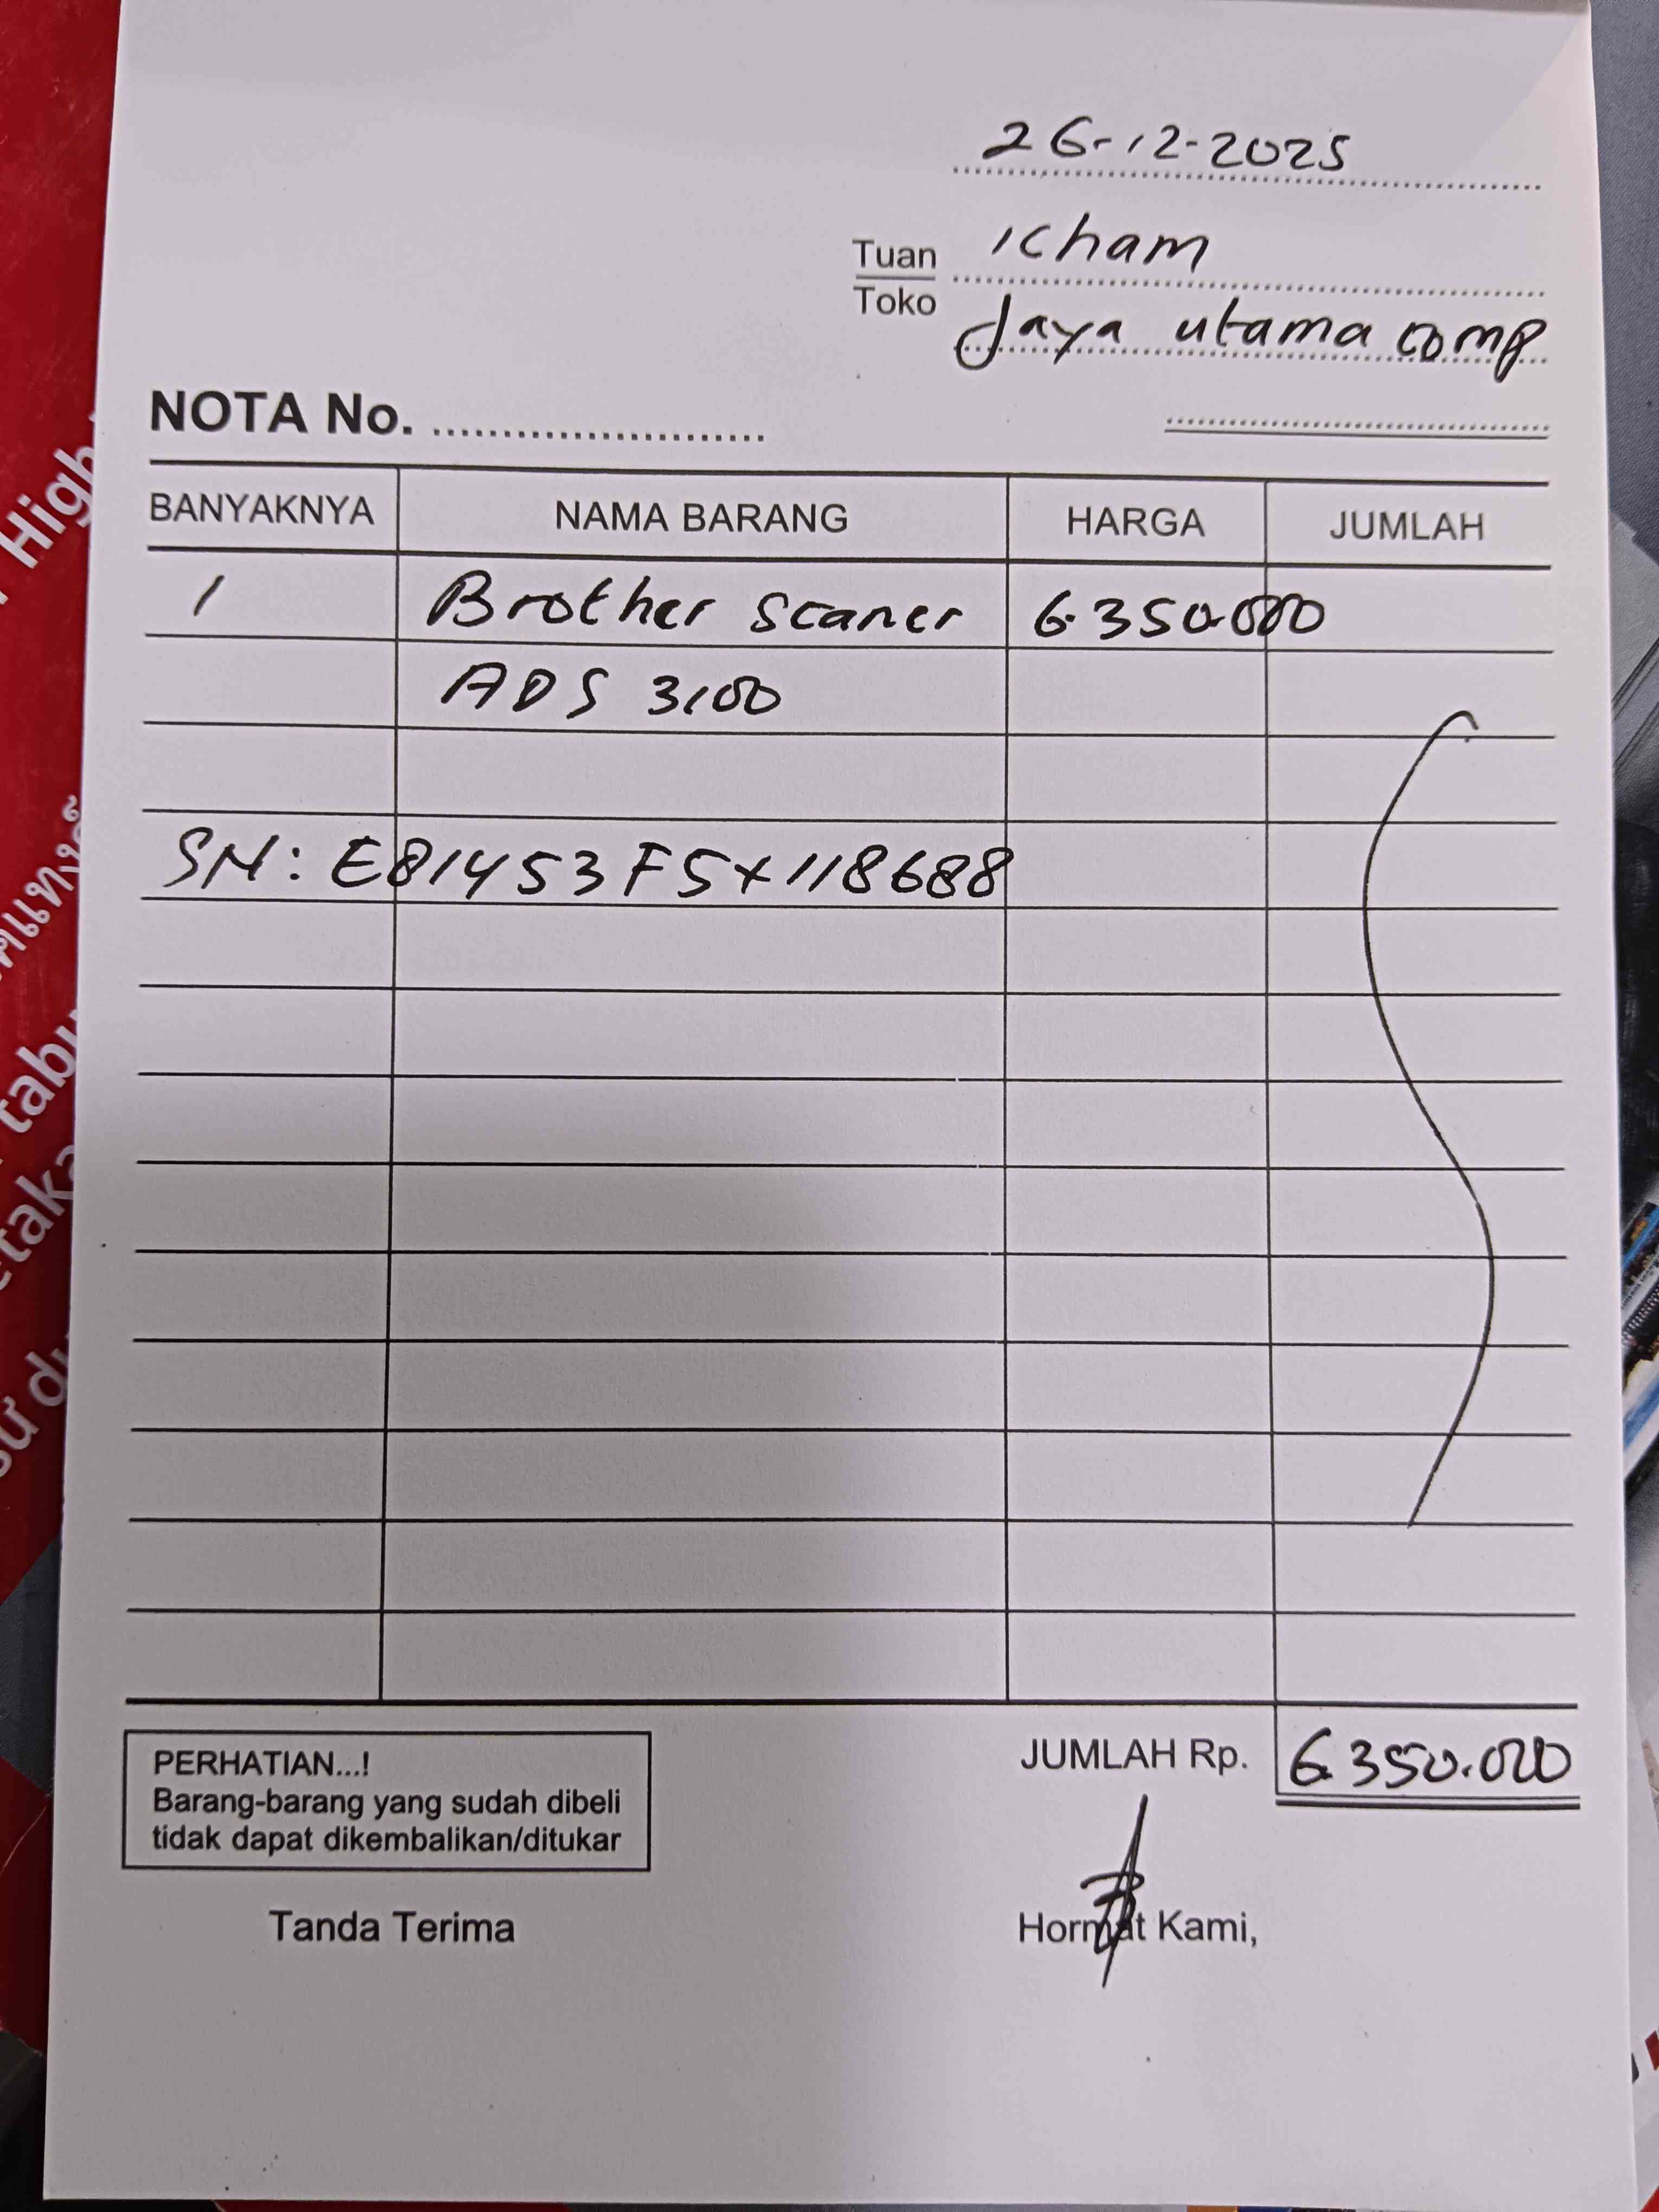 26-12-2025
Tuan Icham
Toko Jaya utama comp
NOTA No. ........................
BANYAKNYA NAMA BARANG HARGA JUMLAH
1 Brother Scaner 6.350.000
ADS 3100
SN: E81453F5x118688
JUMLAH Rp. 6.350.000
PERHATIAN...!
Barang-barang yang sudah dibeli
tidak dapat dikembalikan/ditukar
Tanda Terima Hormat Kami,
High
tabu
etaka
sử dụ